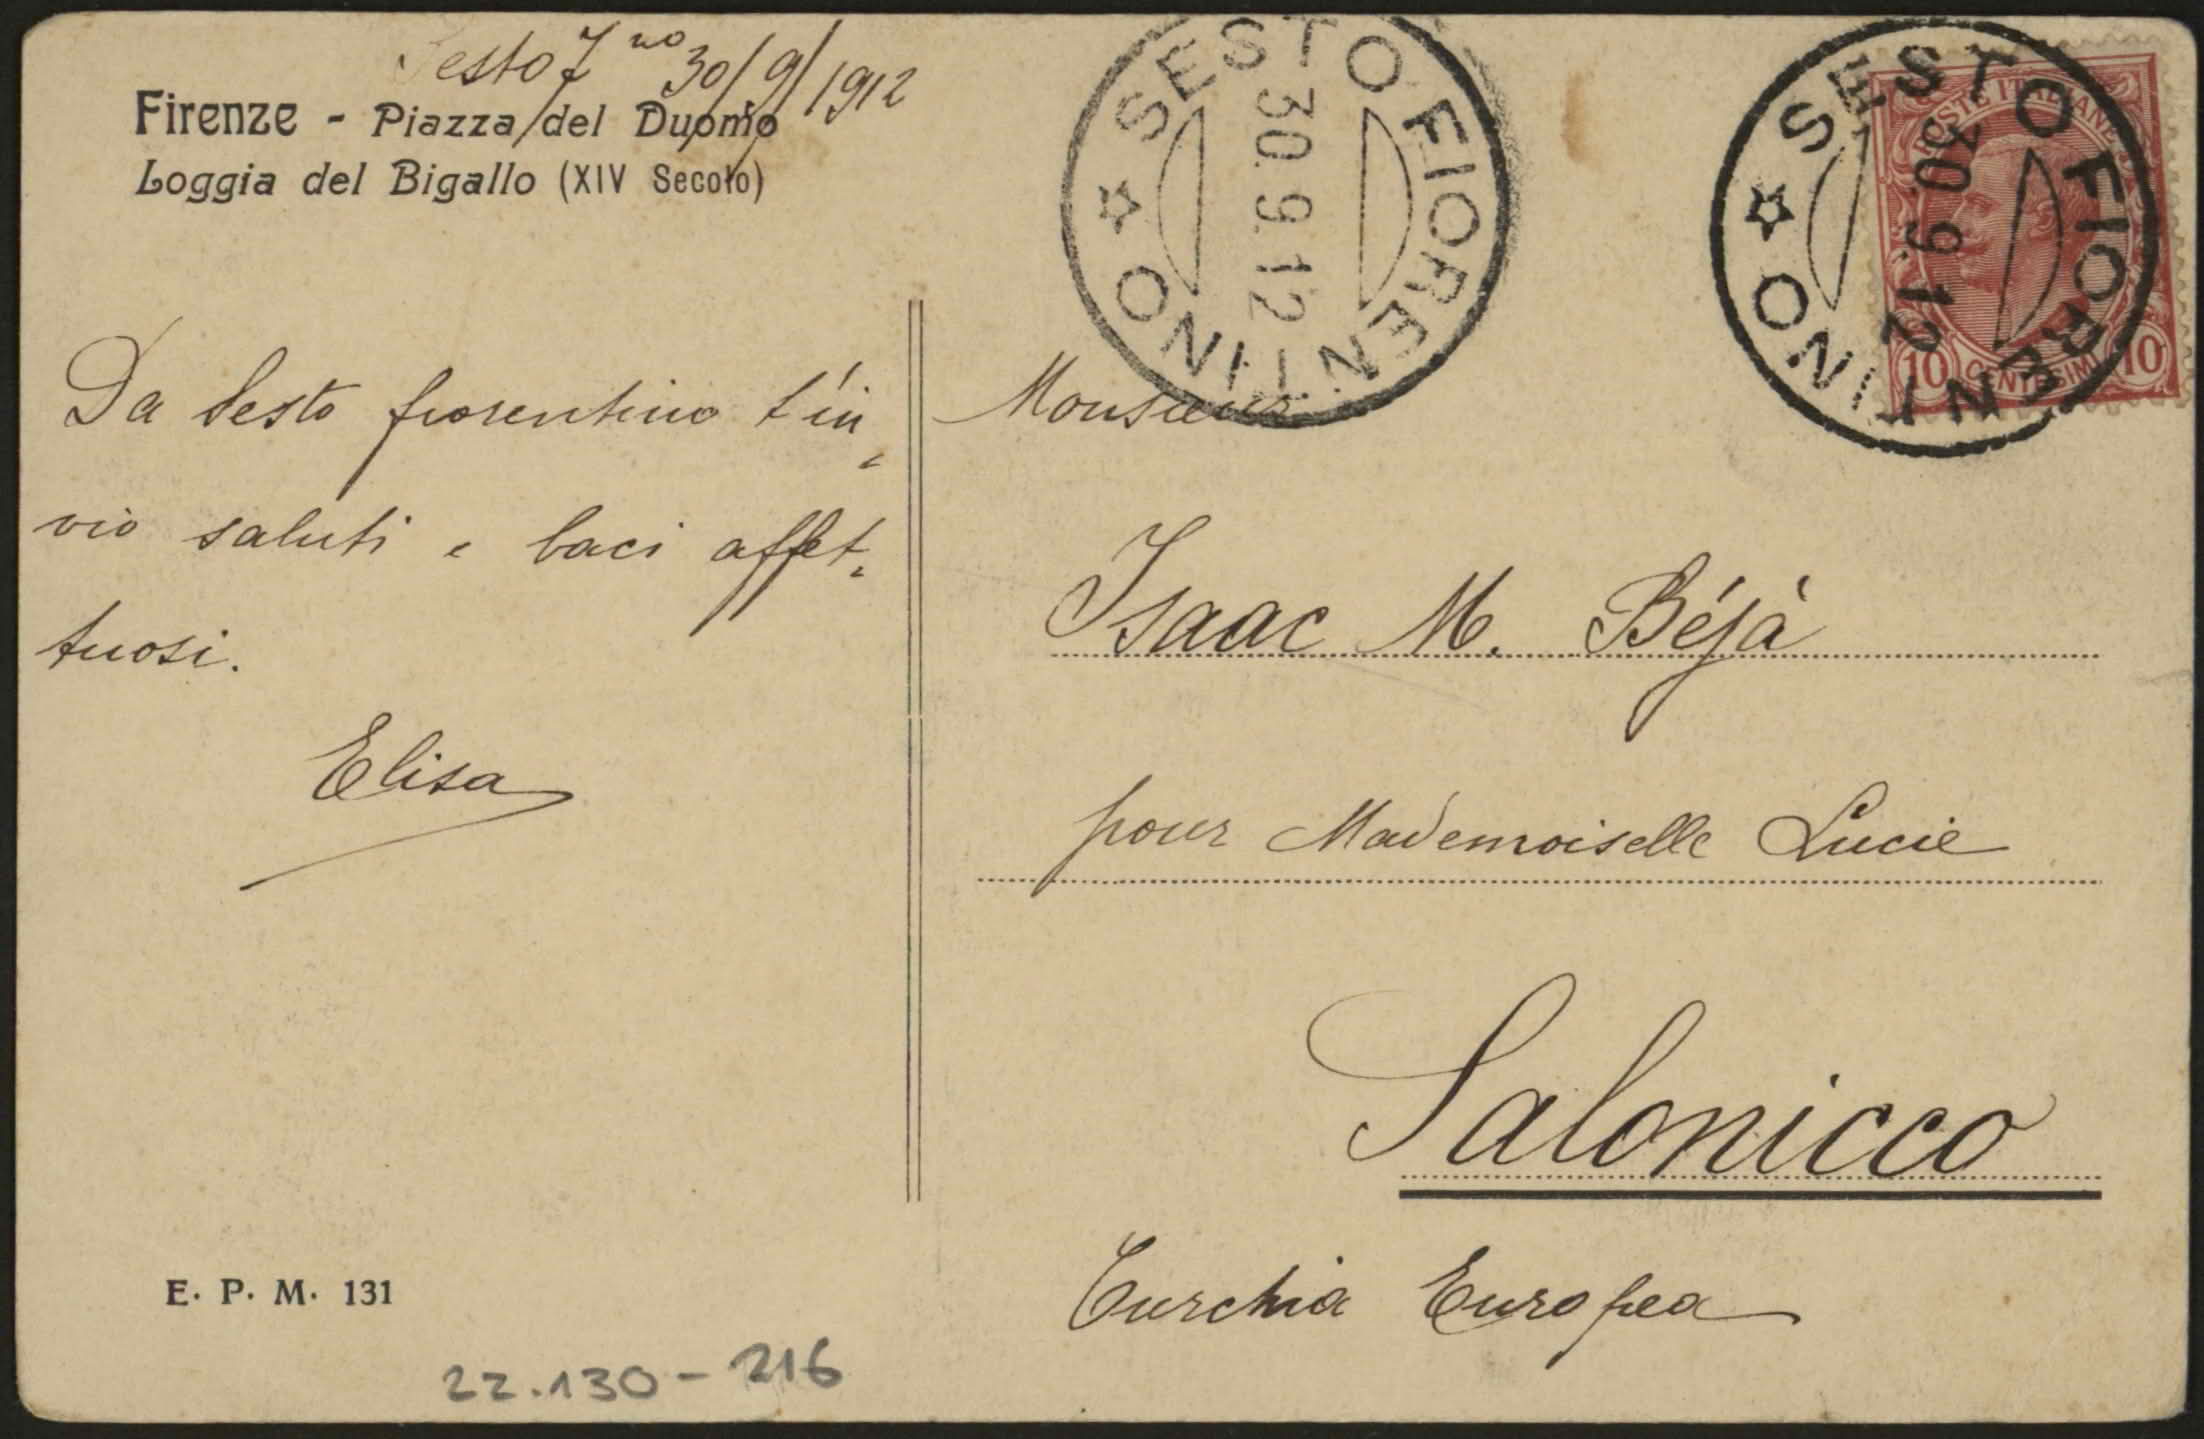 Sesto F.no 30/9/1912
Firenze - Piazza del Duomo
Loggia del Bigallo (XIV Secolo)
SESTO FIORENTINO
30.9.12
SESTO FIORENTINO
30.9.12
POSTE ITALIANE
10 CENTESIMI 10
Da Sesto fiorentino t'in-
vio saluti e baci affet-
tuosi.
Elisa
Monsieur
Isaac M. Béjà
pour Mademoiselle Lucie
Salonicco
Turchia Europea
E. P. M. 131
22.130-216